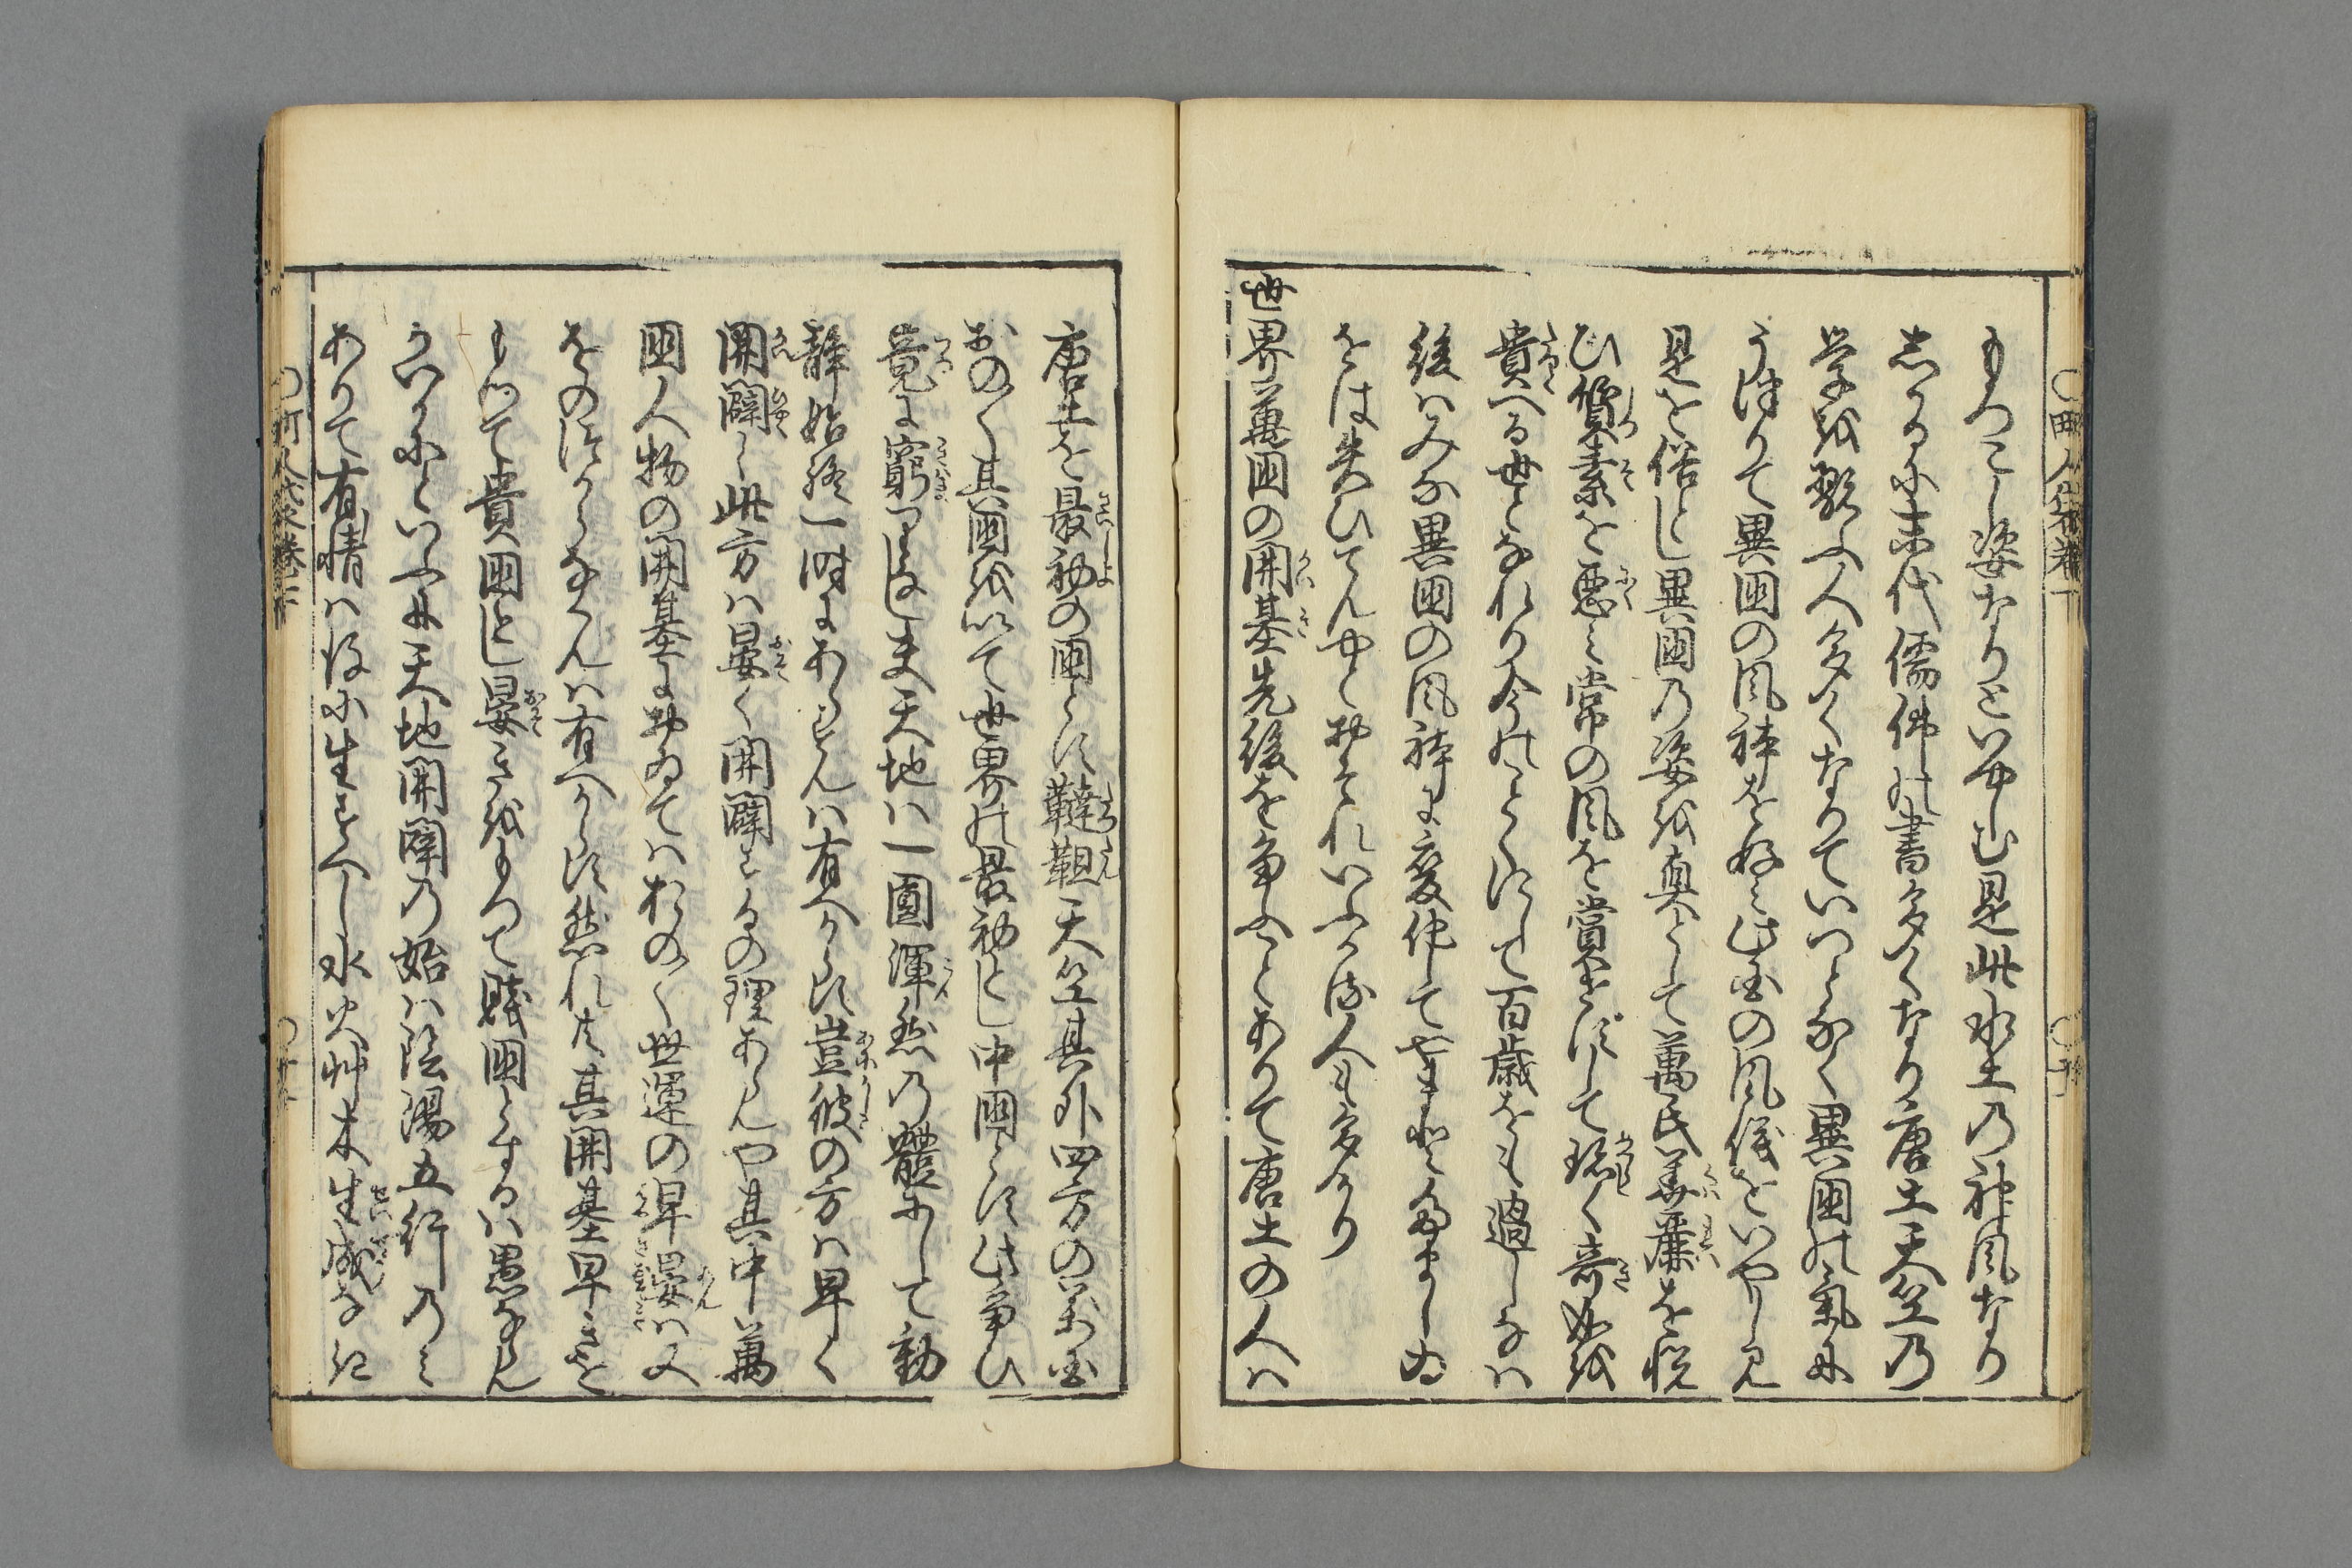 もつこし姿なりといやしむ是此水土乃神風なり
しかるに末代儒佛の書多くなり唐土天竺乃
学を翫ふ人多くなりていつとなく異国の氣に
うつりて異国の風躰を好み此国の風儀をいやしみ
是を俗とし異国乃姿を真として萬民美麗を悦
ひ質素を悪み常の風を賞せずして珍しく奇妙を
貴へる世となれり今のことくにして百歳をも過しなは
後はみな異国の風躰に変化してやまと
をは失ひてんやとおそれいふかる人も多かり
世界萬国の開基先後を争ふことありて唐土の人は
唐土を最初の国とし韃靼天竺其外四方の万国
おの〱其国を以て世界の最初とし中国とし此争ひ
竟に窮りなし夫天地は一圓渾然乃體にして動
静始終一時にあらさらんは有へからす豈彼の方は早く
開闢し此方は晏く開闢するの理あらんや其中萬
国人物の開基におゐてはおの〱世運の早晏は又
をのつからなくんは有へからす然れ共其開基早きを
もつて貴国とし晏きをもつて賤国とするは愚ならん
かいかにといふに天地開闢乃始は陰陽五行乃み
ありて有情は後に生すへし水火艸木生成なき
町人袋巻下